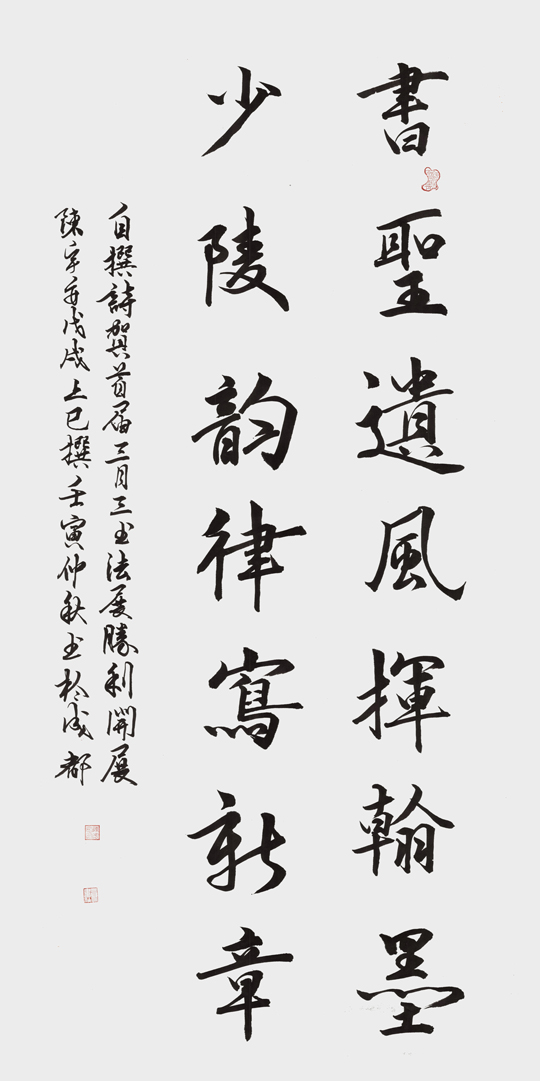 書聖遺風揮翰墨
少陵韵律寫新章
自撰詩賀首届三月三书法展勝利開展
陳宇 戊戌上巳撰壬寅仲秋书於成都